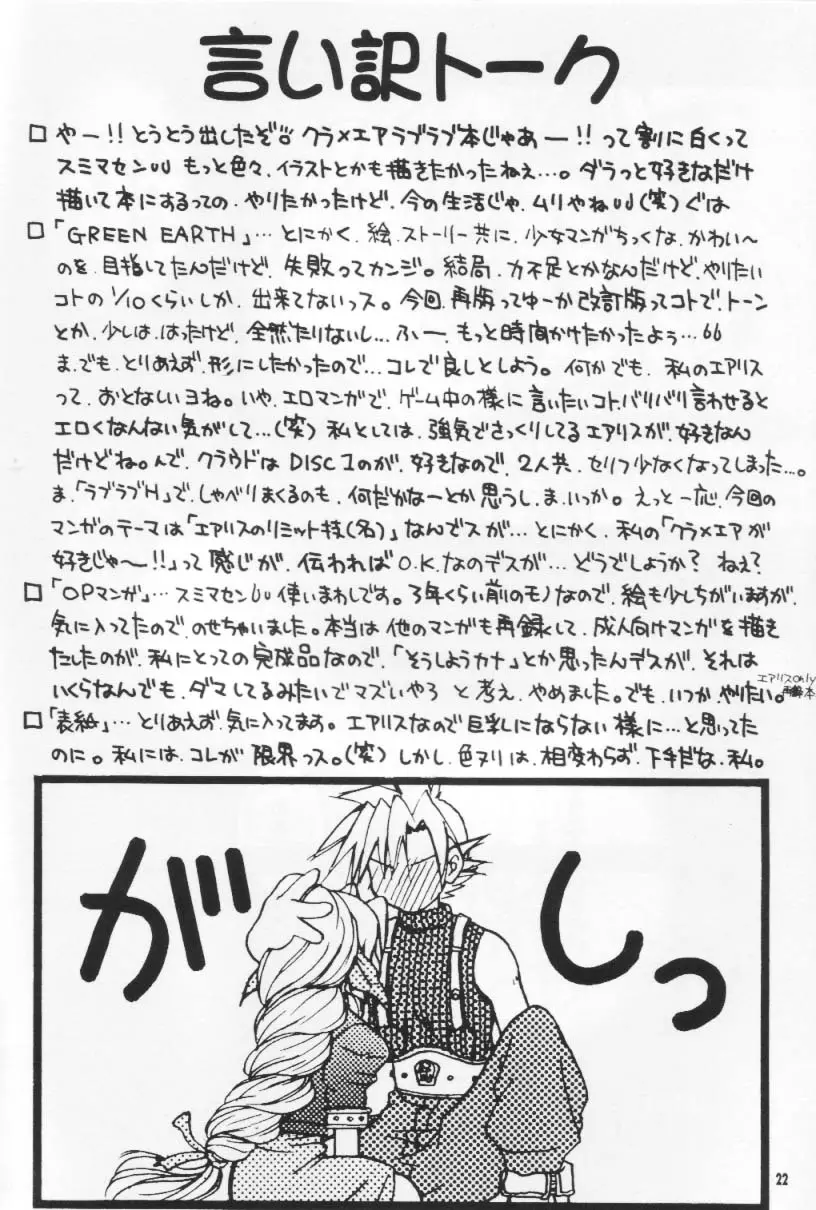 言い訳トーク
□ やー!!とうとう出したぞ!! クラ×エアラブラブ本じゃあー!!って割に白くって
スミマセン もっと色々、イラストとかも描きたかったねえ…。ダラっと好きなだけ
描いて本にするっての、やりたかったけど、今の生活じゃ、ムリやね(笑)ぐは
□ 「GREEN EARTH」…とにかく、絵、ストーリー共に、少女マンガちっくな、かわい〜
のを、目指してたんだけど、失敗ってカンジ。結局、力不足とかなんだけど、やりたい
コトの1/10くらいしか、出来てないっス。今回、再版ってゆーか改訂版ってコトで、トーン
とか、少しは、はったけど、全然たりないし…ふー、もっと時間かけたかったよぅ…
ま、でも、とりあえず、形にしたかったので…コレで良しとしよう。何かでも、私のエアリス
って、おとなしいヨね。いや、エロマンガで、ゲーム中の様に言いたいコト、バリバリ言わせると
エロくなんない気がして…(笑)私としては、強気でさっくりしてるエアリスが、好きなん
だけどね。んで、クラウドは DISC1のが、好きなので、2人共、セリフ少なくなってしまった…。
ま、「ラブラブH」で、しゃべりまくるのも、何だかなーとか思うし、ま、いっか。えっと一応、今回の
マンガのテーマは「エアリスのリミット技(名)」なんでスが…とにかく、私の「クラ×エアが
好きじゃ〜!!」って感じが、伝わればO.K.なのデスが…どうでしょうか? ねえ?
□ 「OPマンガ」…スミマセン 使いまわしです。3年くらい前のモノなので、絵も少しちがいますが、
気に入ってたので、のせちゃいました。本当は他のマンガも再録して、成人向けマンガを描き
たしたのが、私にとっての完成品なので、「そうしようカナ」とか思ったんデスが、それは
いくらなんでも、ダマしてるみたいでマズいやろ と考え、やめました。でも、いつか、やりたい。
エアリスonly
再録本
□ 「表紙」…とりあえず、気に入ってます。エアリスなので巨乳にならない様に…と思ってた
のに。私には、コレが限界っス。(笑)しかし、色ヌリは、相変わらず、下手だな、私。
がしっ
22